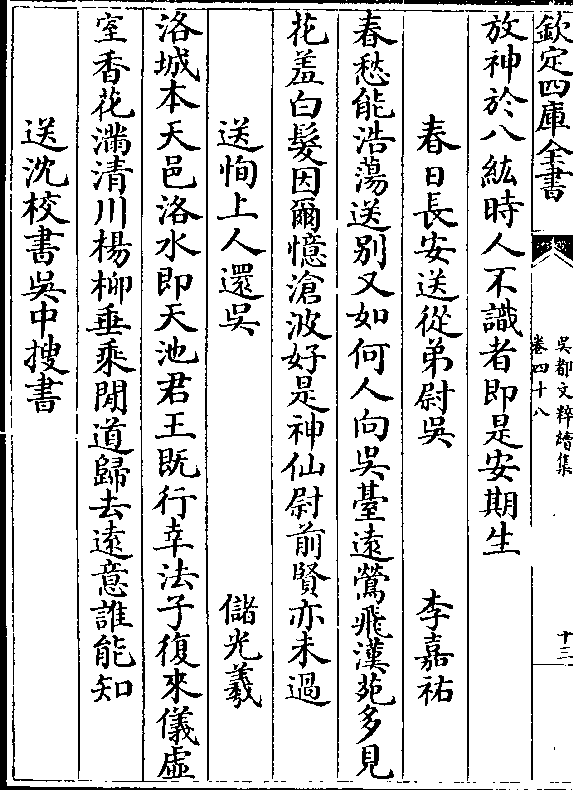 欽定四庫全書
吳都文粹續集
卷四十八
十三
放神於八紘時人不識者即是安期生
春日長安送從弟尉吳 李嘉祐
春愁能浩蕩送別又如何人向吳臺遠鶯飛漢苑多見
花羞白髮因爾憶滄波好是神仙尉前賢亦未過
送恂上人還吳 儲光羲
洛城本天邑洛水即天池君王既行幸法子復來儀虛
室香花滿清川楊柳垂乘閒道歸去遠意誰能知
送沈校書吳中搜書